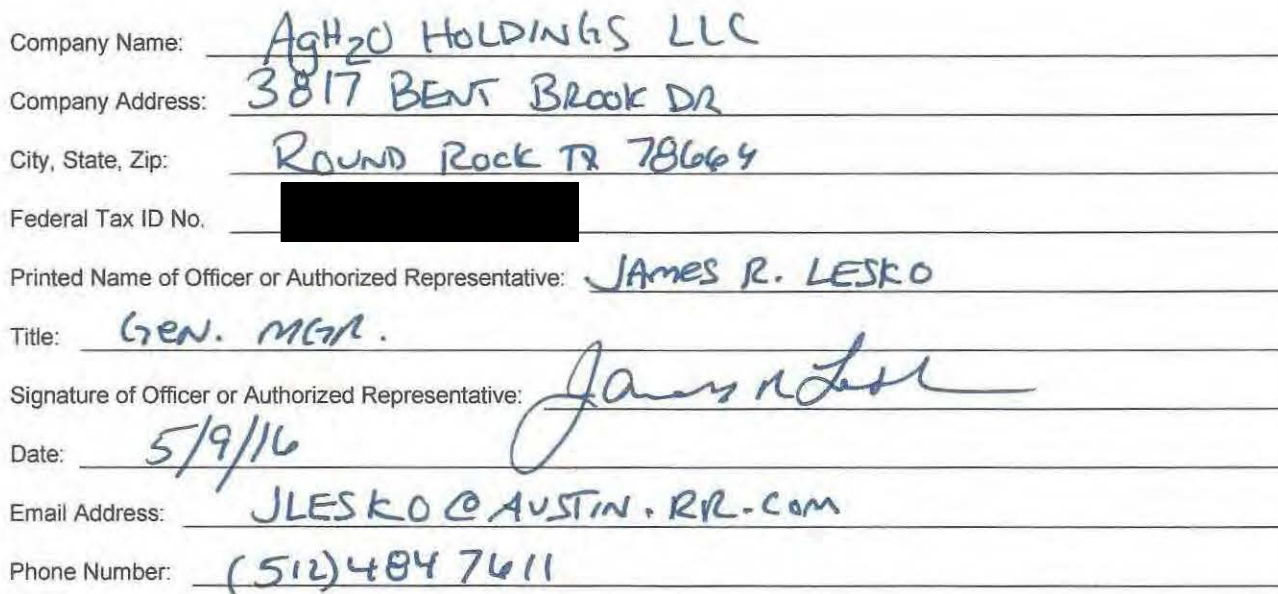 Company Name: AgH2O HOLDINGS LLC
Company Address: 3817 BENT BROOK DR
City, State, Zip: ROUND ROCK TX 78664
Federal Tax ID No.
Printed Name of Officer or Authorized Representative: JAMES R. LESKO
Title: GEN. MGR.
Signature of Officer or Authorized Representative: James R Lesko
Date: 5/9/16
Email Address: JLESKO@AUSTIN.RR.COM
Phone Number: (512) 484 7611